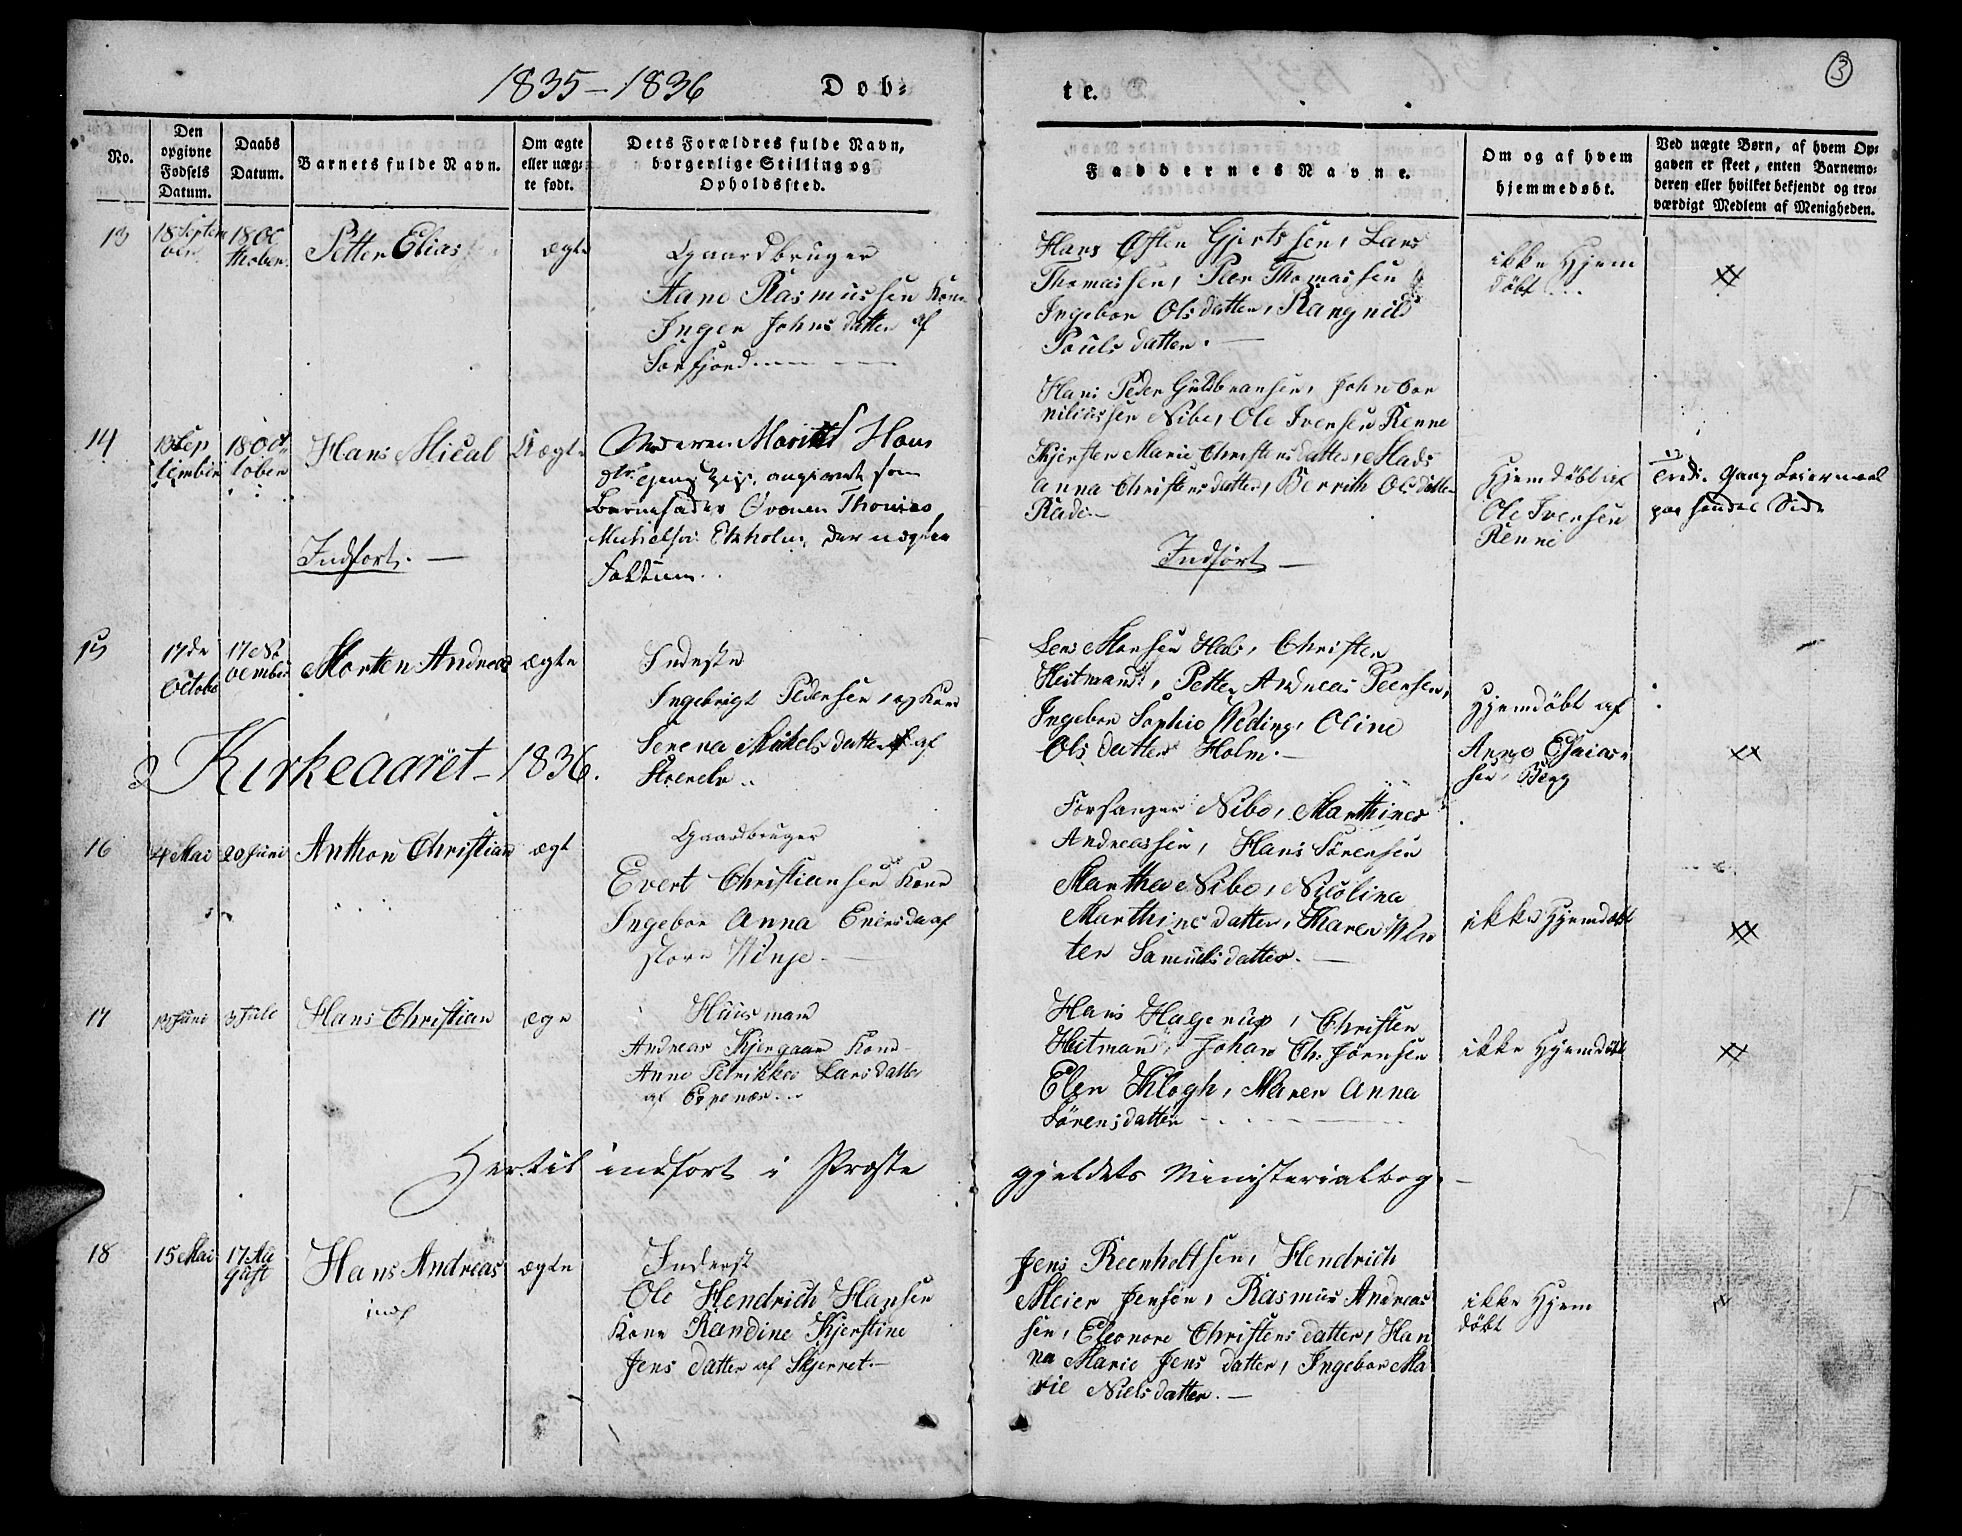 3
1835–1836 Døb-
te.
No.
Den opgivne Fødsels Datum.
Daabs Datum.
Barnets fulde Navn.
Om ægte eller uægte født.
Dets Forældres fulde Navn, borgerlige Stilling og Opholdssted.
Faddernes Navne.
Om og af hvem hjemmedøbt.
Ved uægte Børn, af hvem Opgaven er skeet, enten Barnemoderen eller hvilket bekjendt og troværdigt Medlem af Menigheden.
13
18 Septem
ber
18 Oc
thober
Petter Elias
ægte
Gaardbruger
Rasmussen Kone
Inger Johns datter af
Sørfjord
Hans Østen Gjertssen, Lars
Thomassen, Peer Thomassen
Ingebor Olsdatter, Rangnild
Pouls datter.
ikke Hjem
døbt
14
13 Sep
tember
18 Oc
tober
Hans Mical
Uægte
Moderen Hans
dtr. angivent som
Barnefader Thomas
Ekholm, der nægter
Faktum.
Indført.
Hans Peder Guldbransen, John Cor
niliussen Nibe, Ole Iversen Renne
Kjersten Marie Christensdatter, Mads
Anna Christensdatter, Berrith Olsdatter
Rade
Indført
Hjemdøbt af
Ole Iversen
Renne
Tredie Gang Leiermaal
paa hendes Side
15
17de
Octobr
17 No
vember
Morten Andreas
ægte
Inderste
Ingebrigt Pedersen og Kone
Serena Mikels datter af
Jens Monsen Hals, Christen
Heitmand, Petter Andreas Peersen,
Ingebor Sophie Weding, Oline
Ols datter Holm.
Hjemdøbt af
Arne Esaias
sen Berg
Kirkeaaret – 1836.
16
4 Mai
20 Juni
Anthon Christian
ægte
Gaardbruger
Evert Christiansen Kone
Ingebor Anna af
store Vinje
Forsanger Nibe, Marthines
Andreassen, Hans Sørensen
Martha Nibe, Nicolina
Marthinesdatter, Karen
Samuelsdatter.
ikke Hjemdøbt
17
13 Juni
3 Juli
Hans Christian
ægte
Huusmand
Andreas Kjergaar Kone
Anne Petrikke Larsdatter
af Espenæs
Hans Hagerup, Christen
Heitmand, Johan Ch. Jørnsen
Elen Klogh, Maren Anna
Sørensdatter
ikke Hjemdøbt
Hertil indført i Præste
gjeldets Ministerialbog.
18
15 Mai
17 Au
gust
Hans Andreas
indf
ægte
Inderst
Ole Hendrich Hansen
Kone Randine Kjerstine
Jens datter af Skjerret
Jens Reenholtsen, Hendrich
Meier Jensen, Rasmus Andreas
sen, Eleonore Christens datter, Han
na Marie Jens datter, Ingebor Ma
rie Nielsdatter.
ikke Hjem
døbt